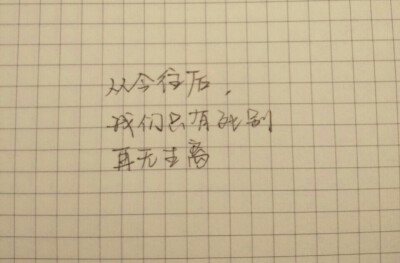 从今往后，
我们只有死别
再无生离